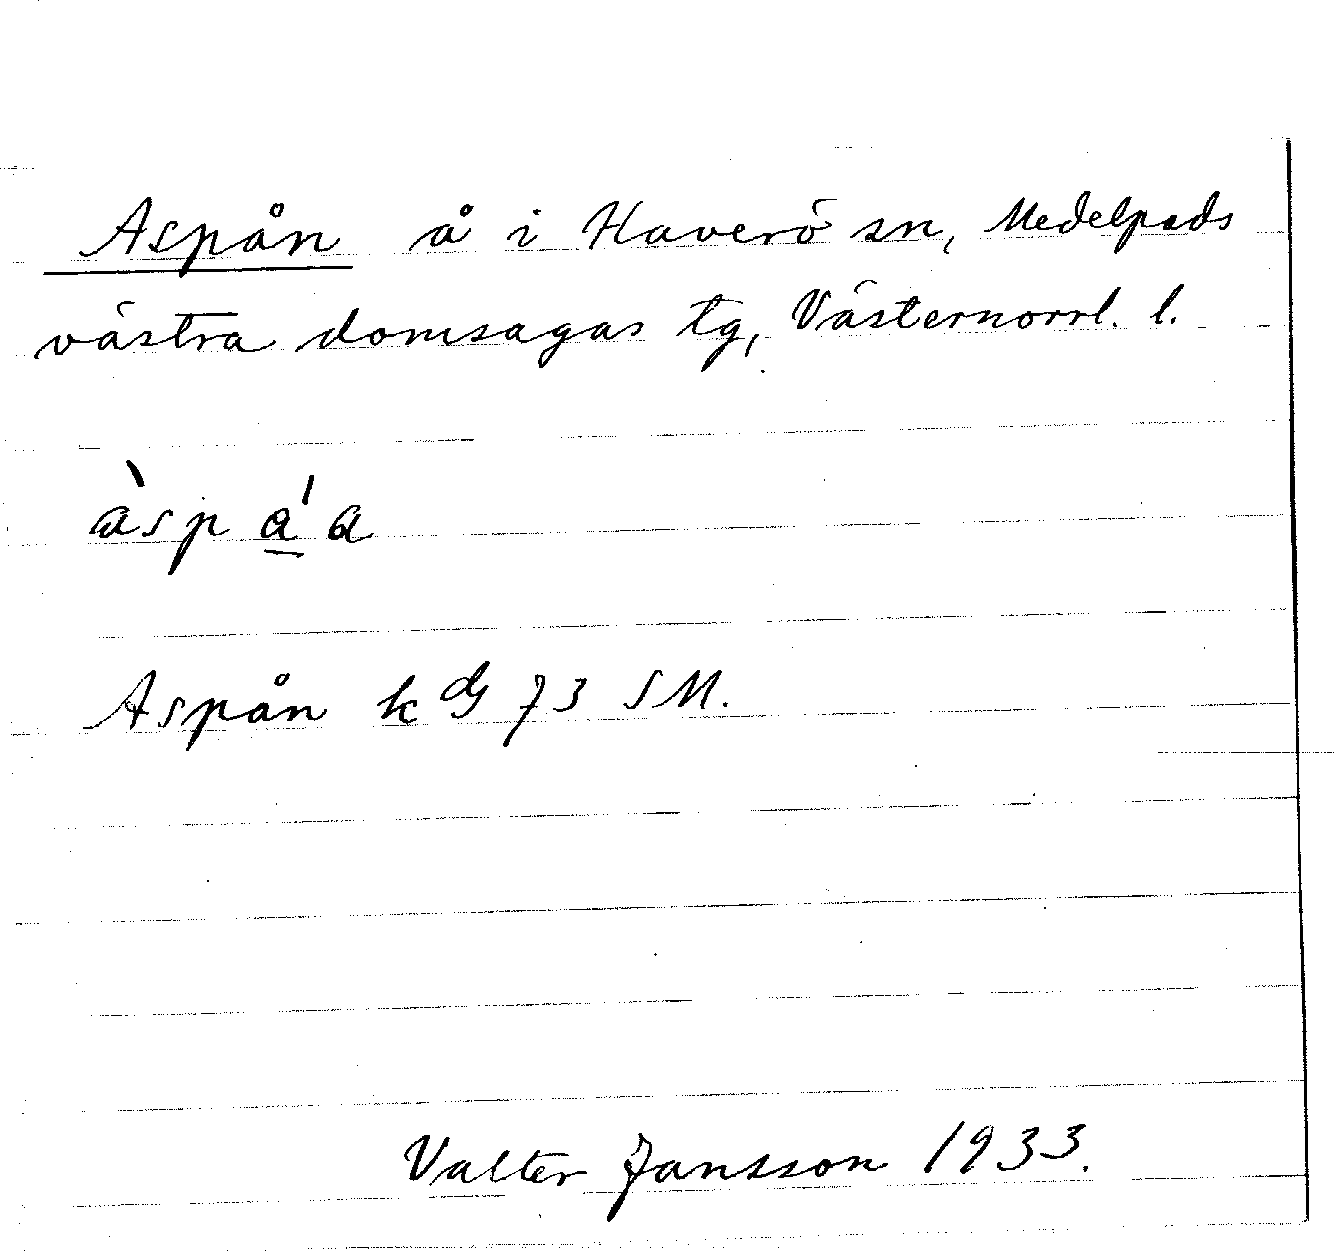 Aspån å i Haverö sn, Medelpads
västra domsagas tg, Västernorrl. l.
àsp á̲ a
Aspån k 73 SM.
Valter Jansson 1933.